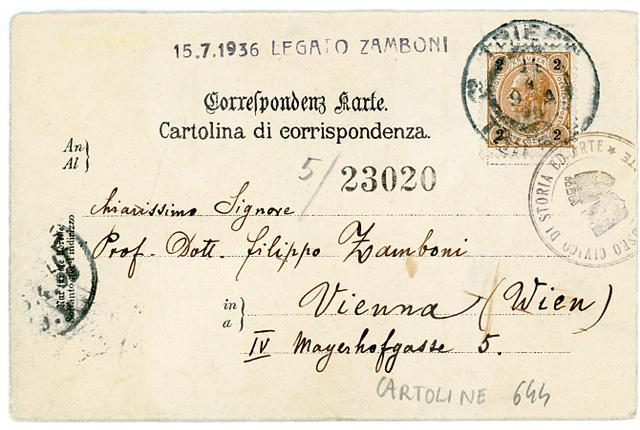 15.7.1936 LEGATO ZAMBONI
TRIEST
2 2
2 2
Correspondenz Karte.
Cartolina di corrispondenza.
An
Al
5/ 23020
MUSEO CIVICO DI STORIA ED ARTE *
Chiarissimo Signore
Prof. Dott. Filippo Zamboni
in
a
Vienna (Wien)
IV Mayerhofgasse 5.
Nur für die Adresse
Soltanto per l'indirizzo
CARTOLINE 644